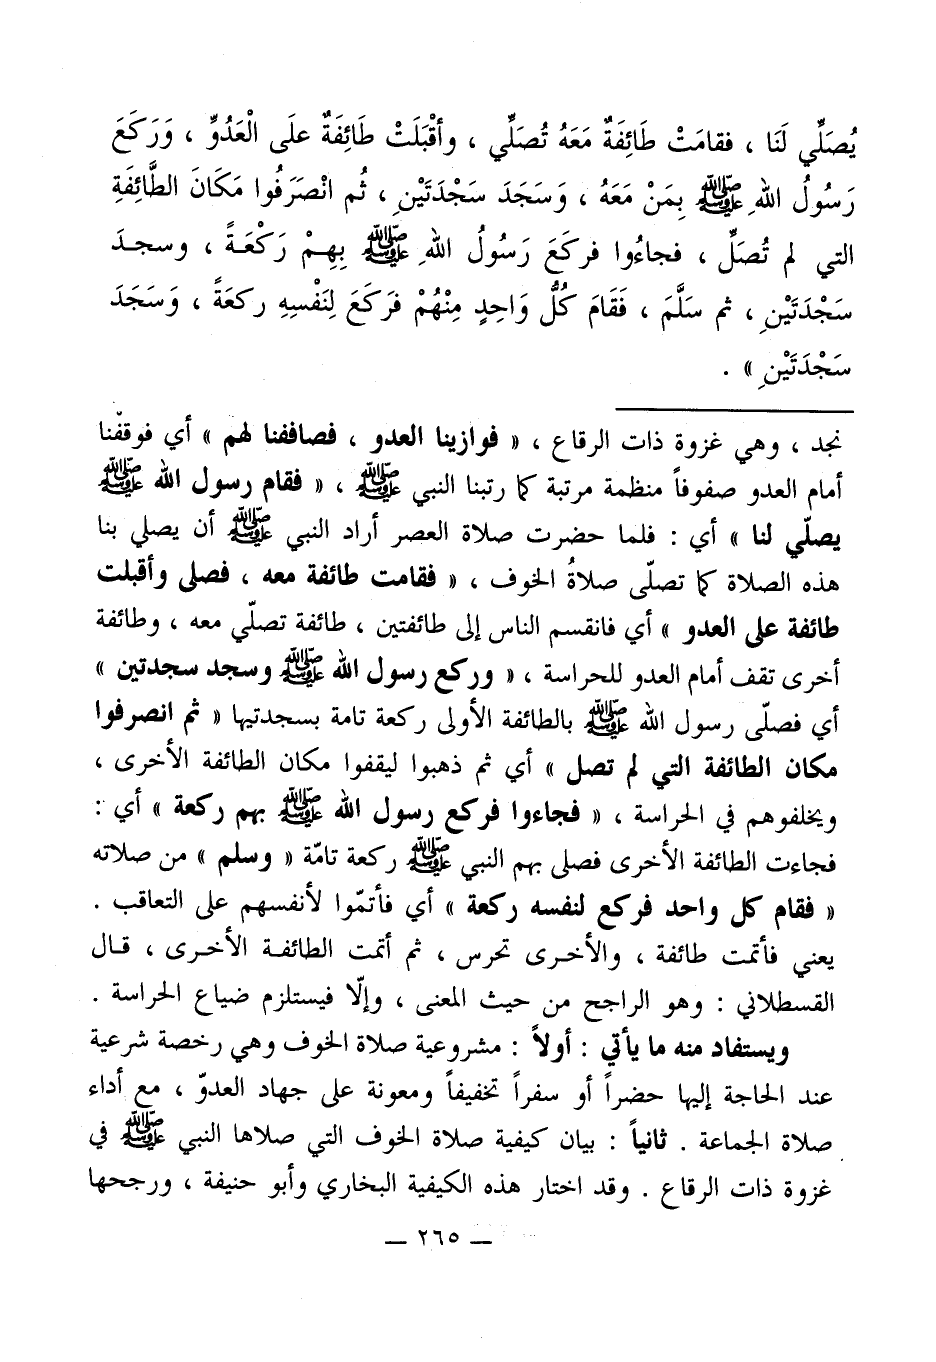 يُصَلِّي لَنَا ، فقامَتْ طَائِفَةٌ مَعَهُ تُصَلِّي ، وأقْبَلَتْ طَائِفَةٌ علَى الْعَدُوِّ ، وَرَكَعَ
رَسُولُ اللهِ ﷺ بِمَنْ مَعَهُ ، وَسَجَدَ سَجْدَتَيْنِ ، ثُم انْصَرَفُوا مَكَانَ الطَّائِفَةِ
التي لم تُصَلِّ ، فجاءُوا فركَعَ رَسُولُ اللهِ ﷺ بِهِمْ رَكْعَةً ، وسجدَ
سَجْدَتَيْنِ ، ثم سَلَّمَ ، فَقَامَ كُلُّ وَاحِدٍ مِنْهُمْ فَرَكَعَ لِنَفْسِهِ ركعَةً ، وَسَجَدَ
سَجْدَتَيْنِ » .
نجد ، وهي غزوة ذات الرقاع ، « فوازينا العدو ، فصاففنا لهم » أي فوقفنا
أمام العدو صفوفاً منظمة مرتبة كما رتبنا النبي ﷺ ، « فقام رسول الله ﷺ
يصلّي لنا » أي : فلما حضرت صلاة العصر أراد النبي ﷺ أن يصلي بنا
هذه الصلاة كما تصلّى صلاةُ الخوف ، « فقامت طائفة معه ، فصلى وأقبلت
طائفة على العدو » أي فانقسم الناس إلى طائفتين ، طائفة تصلّي معه ، وطائفة
أخرى تقف أمام العدو للحراسة ، « وركع رسول الله ﷺ وسجد سجدتين »
أي فصلّى رسول الله ﷺ بالطائفة الأولى ركعة تامة بسجدتيها « ثم انصرفوا
مكان الطائفة التي لم تصل » أي ثم ذهبوا ليقفوا مكان الطائفة الأخرى ،
ويخلفوهم في الحراسة ، « فجاءوا فركع رسول الله ﷺ بهم ركعة » أي :
فجاءت الطائفة الأخرى فصلى بهم النبي ﷺ ركعة تامّة « وسلم » من صلاته
« فقام كل واحد فركع لنفسه ركعة » أي فأتمّوا لأنفسهم على التعاقب .
يعني فأتمت طائفة ، والأخرى تحرس ، ثم أتمت الطائفة الأخرى ، قال
القسطلاني : وهو الراجح من حيث المعنى ، وإلّا فيستلزم ضياع الحراسة .
ويستفاد منه ما يأتي : أولاً : مشروعية صلاة الخوف وهي رخصة شرعية
عند الحاجة إليها حضراً أو سفراً تخفيفاً ومعونة على جهاد العدوّ ، مع أداء
صلاة الجماعة . ثانياً : بيان كيفية صلاة الخوف التي صلاها النبي ﷺ في
غزوة ذات الرقاع . وقد اختار هذه الكيفية البخاري وأبو حنيفة ، ورجحها
— ٢٦٥ —